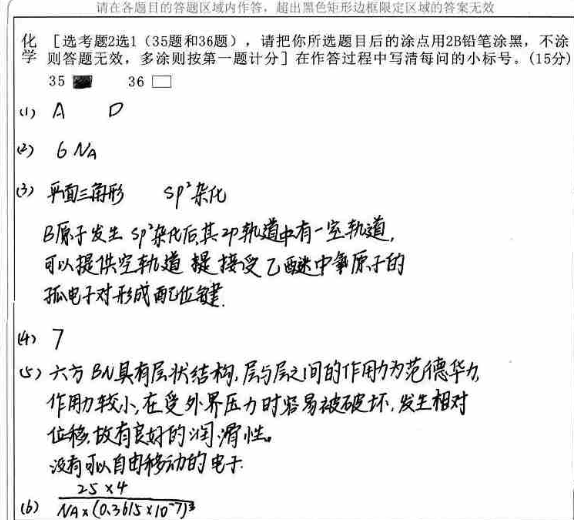 请在各题目的答题区域内作答，超出黑色矩形边框限定区域的答案无效
化学 [选考题2选1（35题和36题），请把你所选题目后的涂点用2B铅笔涂黑，不涂
则答题无效，多涂则按第一题计分] 在作答过程中写清每问的小标号。(15分)
35 36
(1) A D
(2) 6NA
(3) 平面三角形 sp²杂化
B原子发生sp²杂化后,其2p轨道中有一空轨道,
可以提供空轨道 接受乙醚中氧原子的
孤电子对形成配位键.
(4) 7
(5) 六方BN具有层状结构,层与层之间的作用力为范德华力,
作用力较小,在受外界压力时容易被破坏,发生相对
位移,故有良好的润滑性。
没有可以自由移动的电子.
25×4
(6) NA×(0.3615×10⁻⁷)³